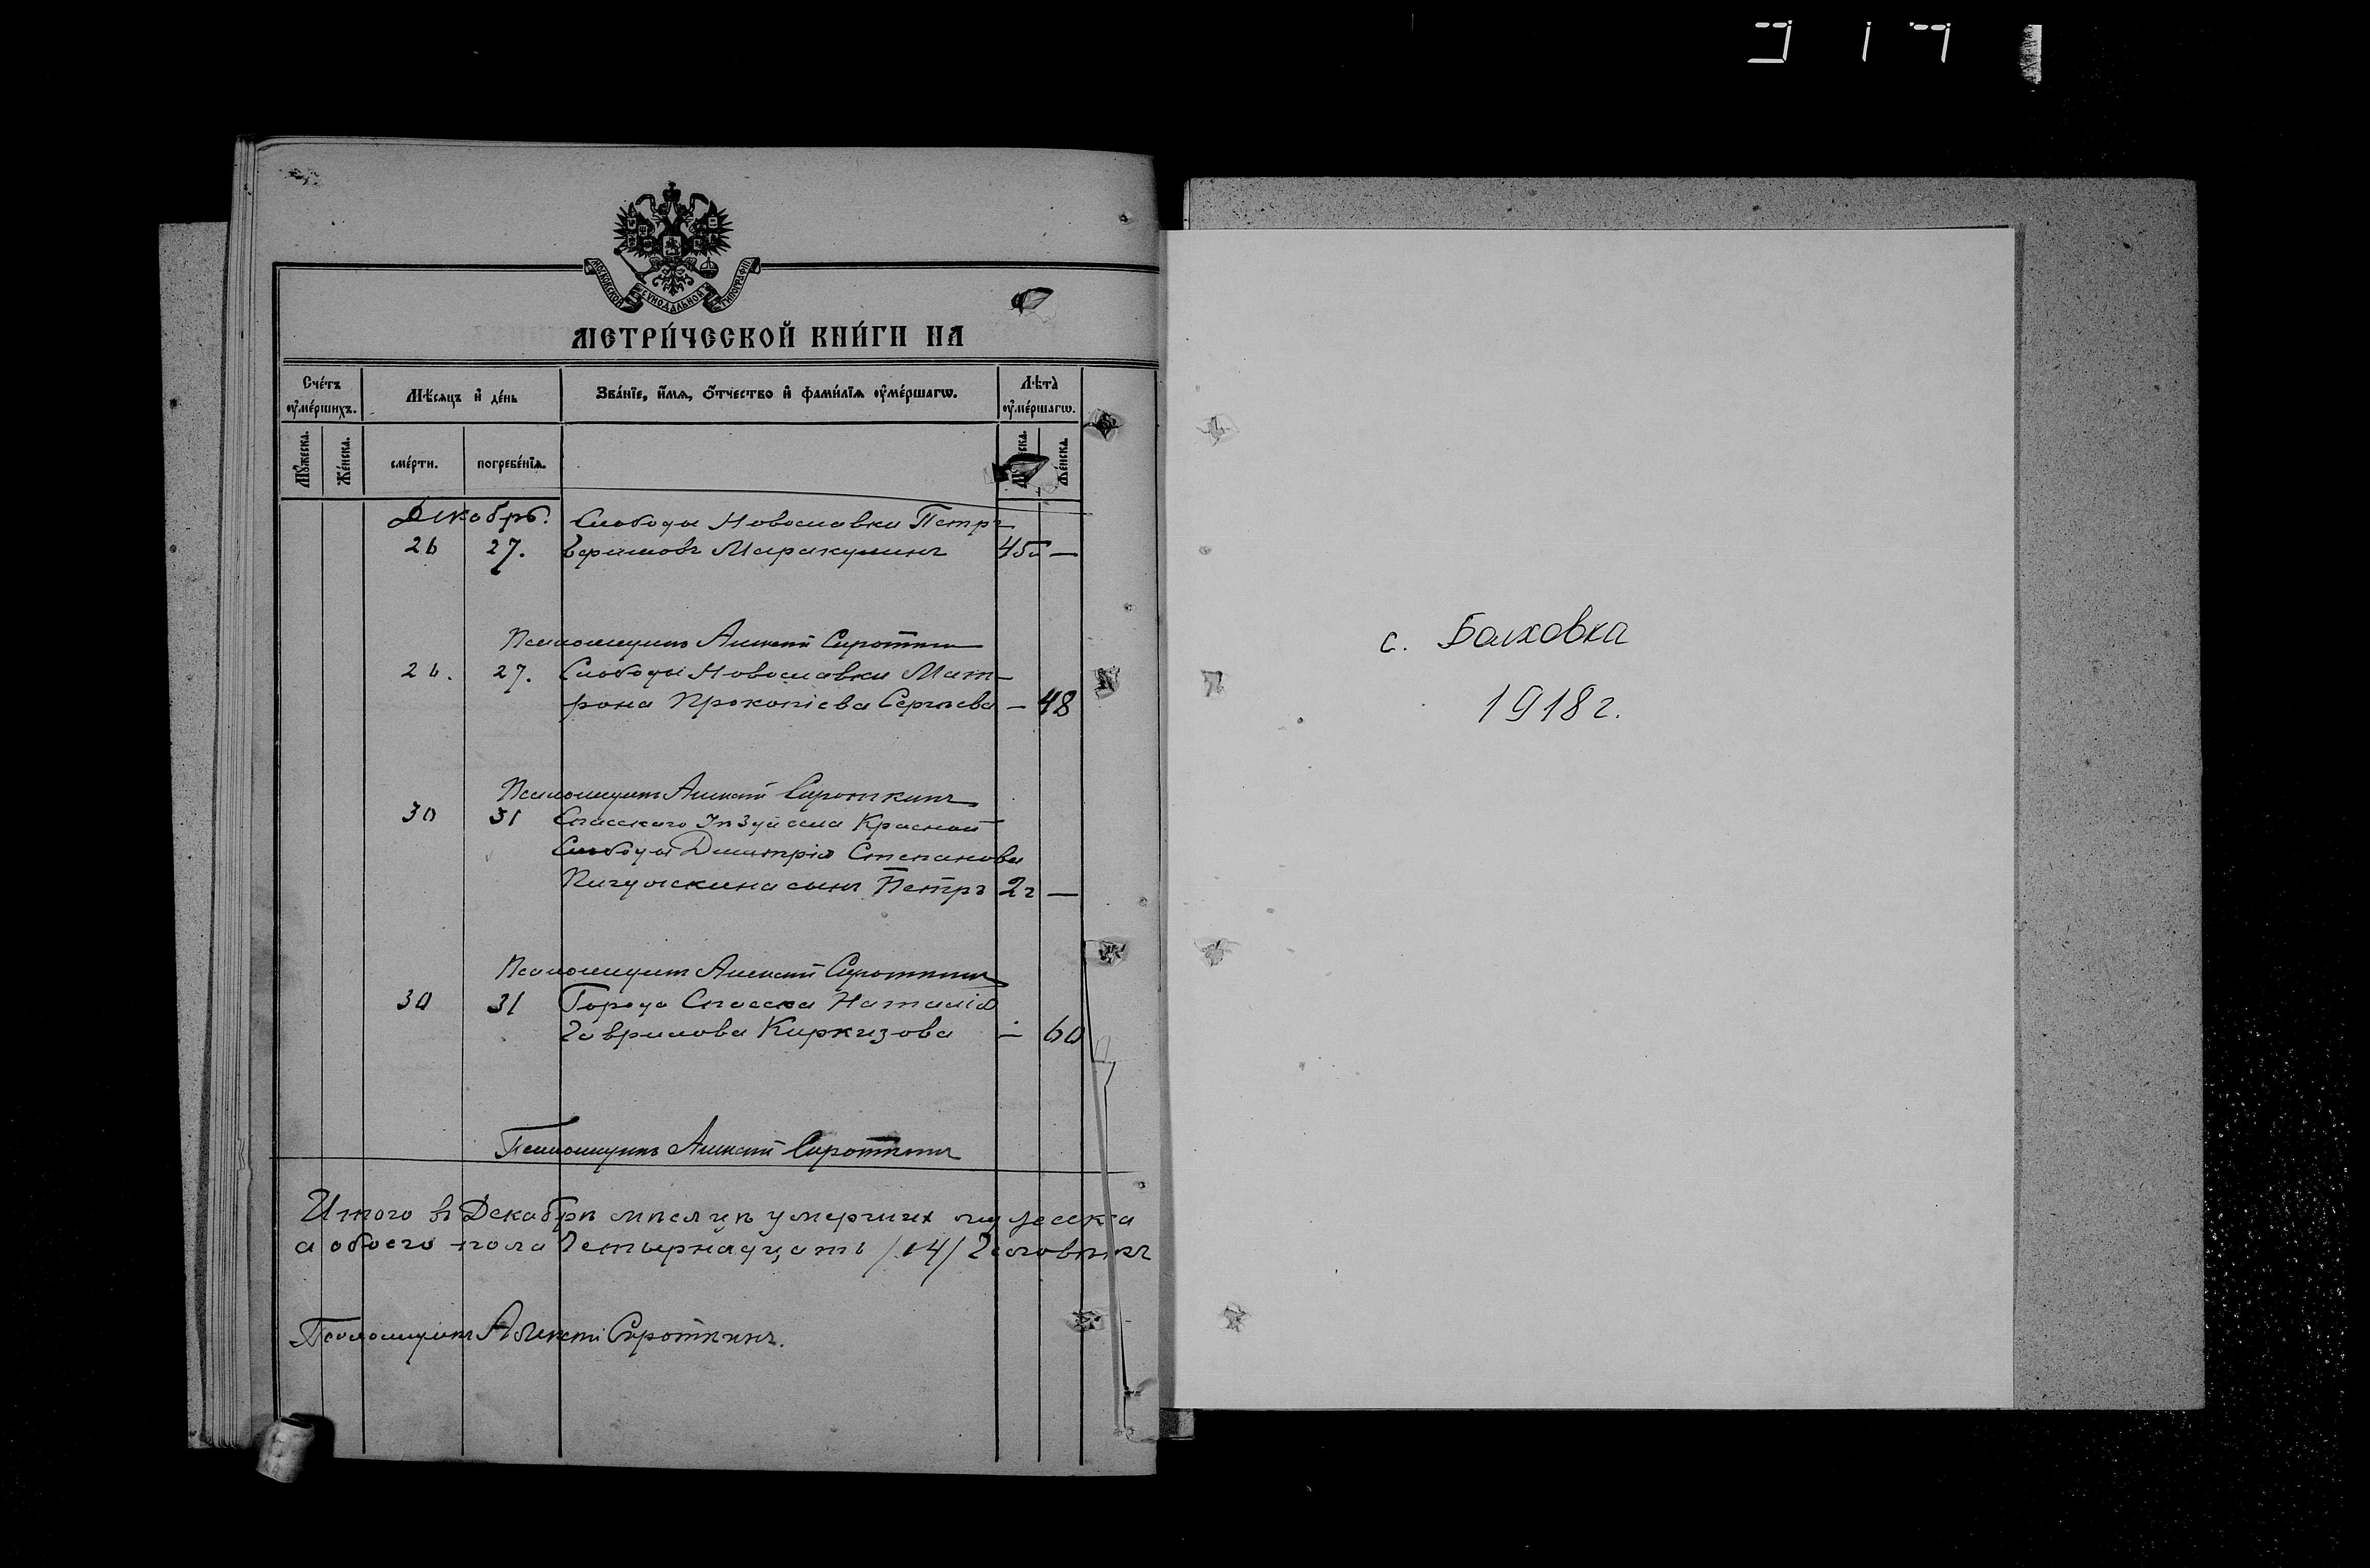 МОСКОВСКОЙ СѴНОДАЛЬНОЙ ТИПОГРАФІИ
МЕТРИ́ЧЕСКОЙ КНИ́ГИ НА
Сче́тъ оу҆ме́ршихъ.
Мѣ́сяцъ и҆ де́нь
Зва́нїе, и҆́мѧ, ѻ҆́тчество и҆ фами́лїѧ оу҆ме́ршагѡ.
Лѣ́та̀ оу҆ме́ршагѡ.
Мꙋ́жеска.
Же́нска.
сме́рти.
погребе́нїѧ.
Же́нска.
Декабрь. Слободы Новославки Петръ
26 27. Маракушинъ 45 —
Псаломщикъ Алексѣй Сироткинъ
26. 27. Слободы Новославки Мат-
рона Прокопіева Сергѣева — 48
Псаломщикъ Алексѣй Сироткинъ
30 31 Спасскаго села Красной
Слободы Димитрія Степанова
сынъ Петръ 2г —
Псаломщикъ Алексѣй Сироткинъ
30 31 Города Спасска Наталія
Гаврилова Киркизова — 60
Псаломщикъ Алексѣй Сироткинъ
Итого въ Декабрѣ мѣсяцѣ умершихъ мужеска
а обоего пола четырнадцать /14/ человѣкъ
Псаломщикъ Алексѣй Сироткинъ.
с. Болховка
1918 г.